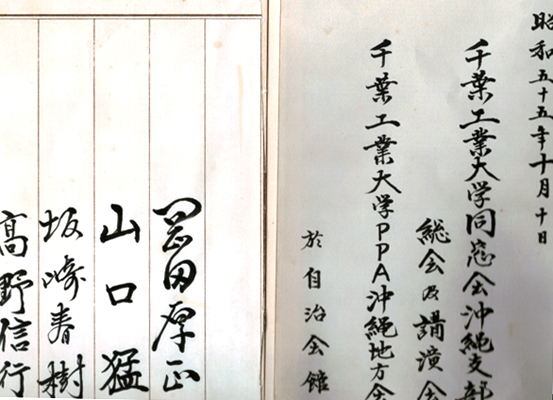 昭和五十五年十月十日
千葉工業大学同窓会沖縄支部
総会及講演会
千葉工業大学PPA沖縄地方会
於自治会館
岡田厚正
山口猛
坂崎春樹
高野信行